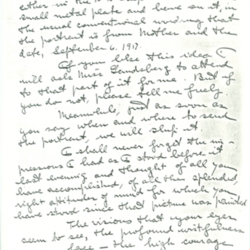 either in the
small metal plate and have on it, in
the usual conventional wording that
the portrait is from Mother and the
date, September 6, 1917.
If you like this idea I
will ask Miss to attend
to that part of it for me. But if
you do not, please tell me freely.
Meanwhile, just as soon as
you say when and where to send
the portrait, we will ship it.
I shall never forget the im-
pressions I had as I stood before it
last evening and thought of all you
have accomplished, of all the splendid,
right attitudes of mind for which you
have stood since that picture was painted
The visions that your eyes
seem to see, the profound wistfulness
face — the high courage